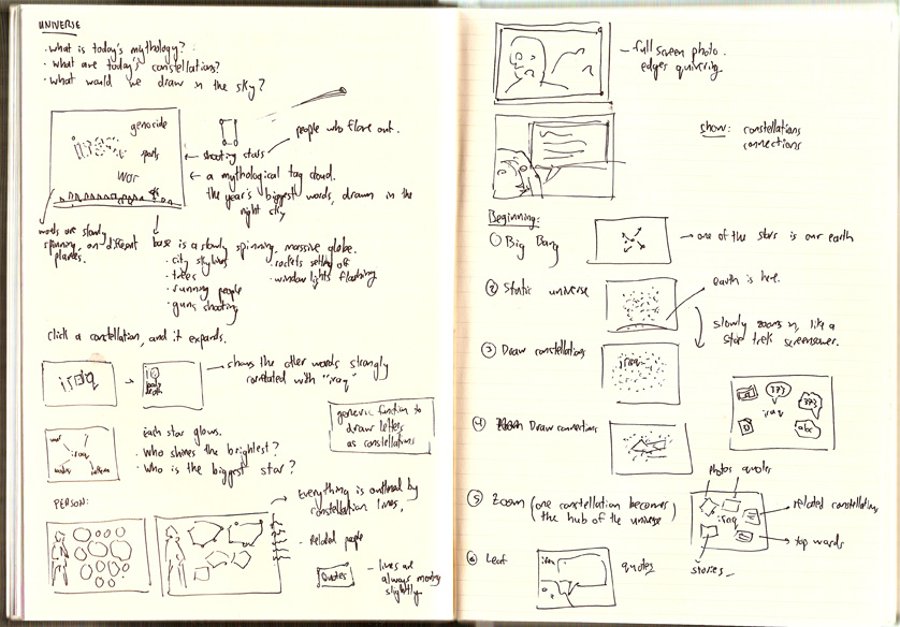 UNIVERSE
· what is today's mythology?
· what are today's constellations?
· what would we draw in the sky?
genocide
iraq
sports
war
people who flare out.
shooting stars
a mythological tag cloud.
the year's biggest words, drawn in the
night sky
words are slowly
spinning, on different
planes.
base is a slowly spinning, massive globe.
· city skylines
· trees
· running people
· guns shooting
· rockets setting off
· window lights flashing
click a constellation, and it expands.
iraq
shows the other words strongly
correlated with "iraq"
generic function to
draw letters
as constellations
war
iraq
Each star glows.
· Who shines the brightest?
· Who is the biggest star?
PERSON:
Everything is outlined by
constellation lines.
Related people
Quotes
lines are
always moving
slightly.
full screen photo
edges quivering
show: constellations
connections
Beginning:
① Big Bang
one of the stars is our earth
② Static universe
earth is here.
slowly zooms in, like a
star trek screensaver.
③ Draw constellations
iraq
④ Draw connections
iraq
abc
photos quotes
⑤ Zoom (one constellation becomes
the hub of the universe)
iraq
related constellations
top words
stories
⑥ Leaf
iraq
quotes